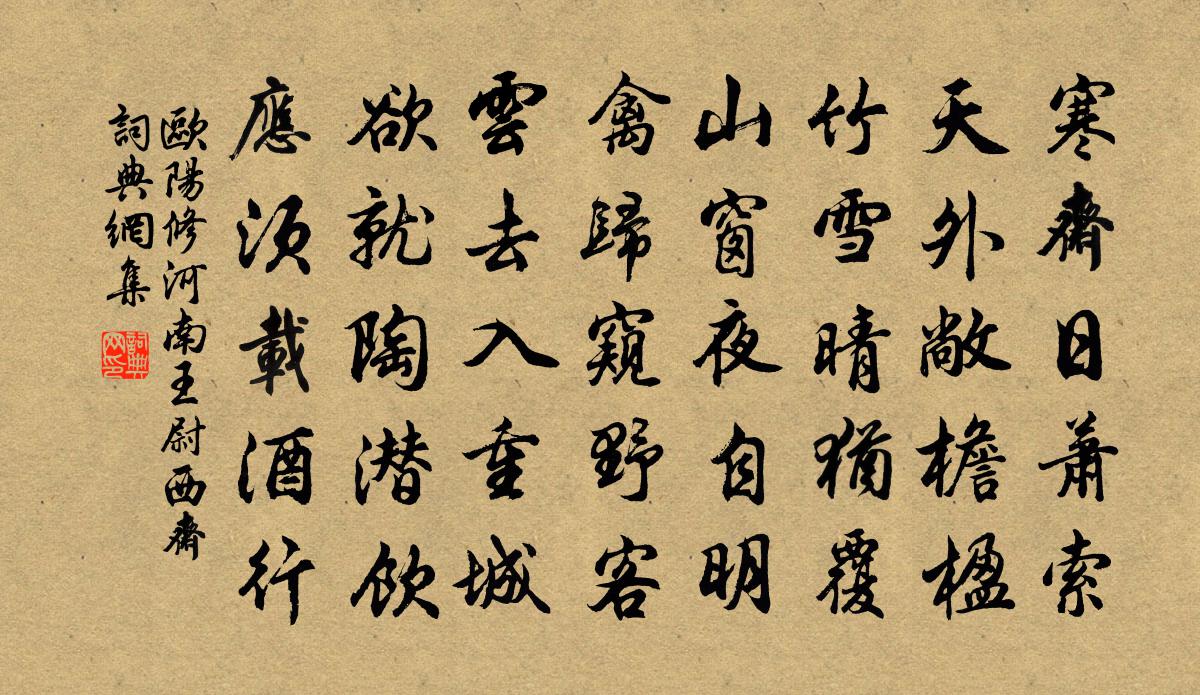 寒齋日蕭索
天外敞檐楹
竹雪晴猶覆
山窗夜自明
禽歸窺野客
雲去入重城
欲就陶潛飲
應須載酒行
歐陽修河南王尉西齋
詞典網集
詞典网印